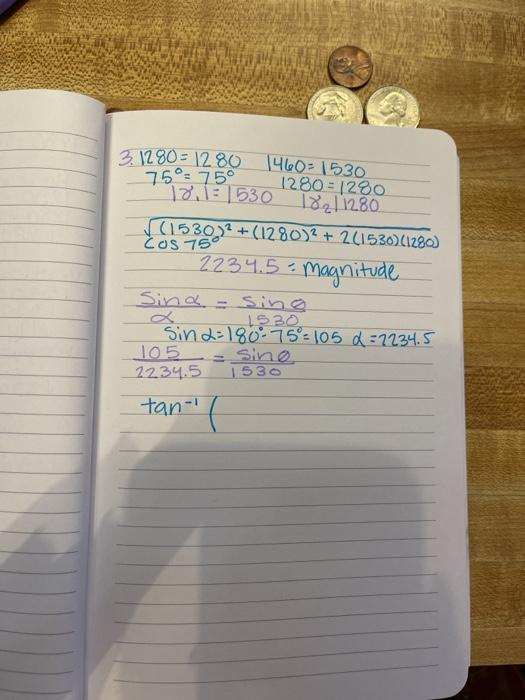 3. 1280 = 1280 1460 = 1530
75° = 75° 1280 = 1280
|γ,| = |530 |γ₂| 1280
√(1530)² + (1280)² + 2(1530)(1280)
cos 75°
2234.5 = magnitude
sin α / α = sin θ / 1530
sin α = 180° - 75° = 105 α = 2234.5
105 / 2234.5 = sin θ / 1530
tan⁻¹ (